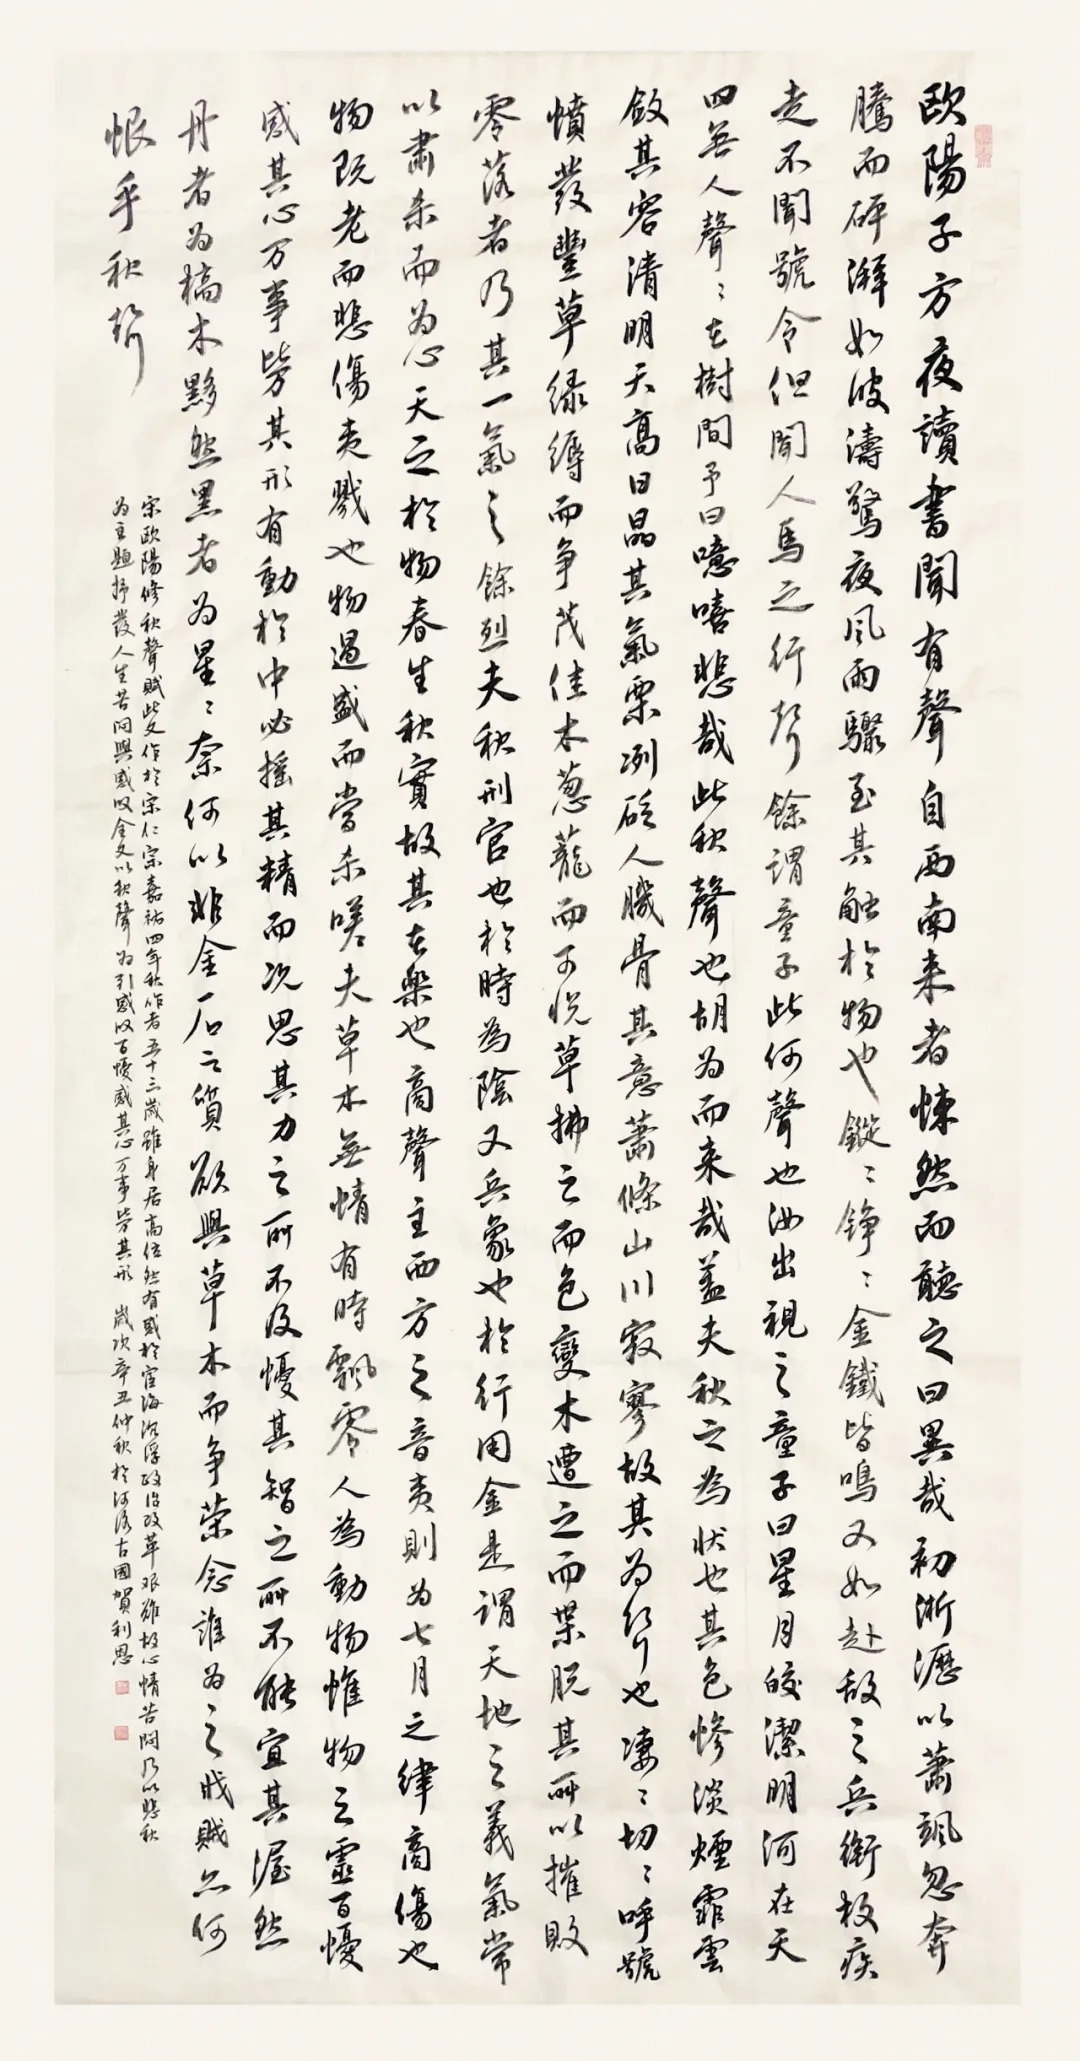 欧陽子方夜讀書聞有聲自西南来者悚然而聽之曰異哉初淅瀝以蕭颯忽奔
騰而砰湃如波濤驚夜風雨驟至其觸於物也鏦〻錚〻金鐵皆鳴又如赴敌之兵銜枚疾
走不聞號令但聞人馬之行聲餘謂童子此何聲也汝出視之童子曰星月皎潔明河在天
四無人聲〻在樹間予曰噫嘻悲哉此秋聲也胡为而来哉蓋夫秋之為状也其色慘淡煙霏雲
斂其容清明天高日晶其氣栗冽砭人肌骨其意蕭條山川寂寥故其为聲也凄〻切〻呼號
憤發豐草绿縟而争茂佳木葱蘢而可悦草拂之而色變木遭之而葉脱其所以摧败
零落者乃其一氣之餘烈夫秋刑官也於時為陰又兵象也於行用金是謂天地之義氣常
以肅杀而为心天之於物春生秋實故其在樂也商聲主西方之音夷則为七月之律商傷也
物既老而悲傷夷戮也物過盛而當杀嗟夫草木無情有時飄零人為動物惟物之靈百憂
感其心万事勞其形有動於中必摇其精而况思其力之所不及憂其智之所不能宜其渥然
丹者为槁木黟然黑者为星〻奈何以非金石之質欲與草木而争荣念誰为之戕賊亦何
恨乎秋聲
宋欧陽修秋聲賦此文作於宋仁宗嘉祐四年秋作者五十三歲雖身居高位然有感於宦海沉浮政治改革艰難故心情苦悶乃以悲秋
为主題抒發人生苦悶與感叹全文以秋聲为引感叹百憂感其心万事勞其形 歲次辛丑仲秋於河洛古國賀利恩